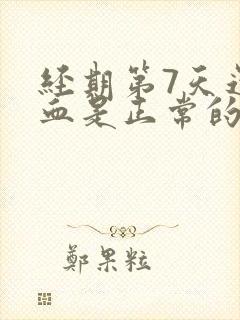 經期第7天還
血是正常的
鄭果粒